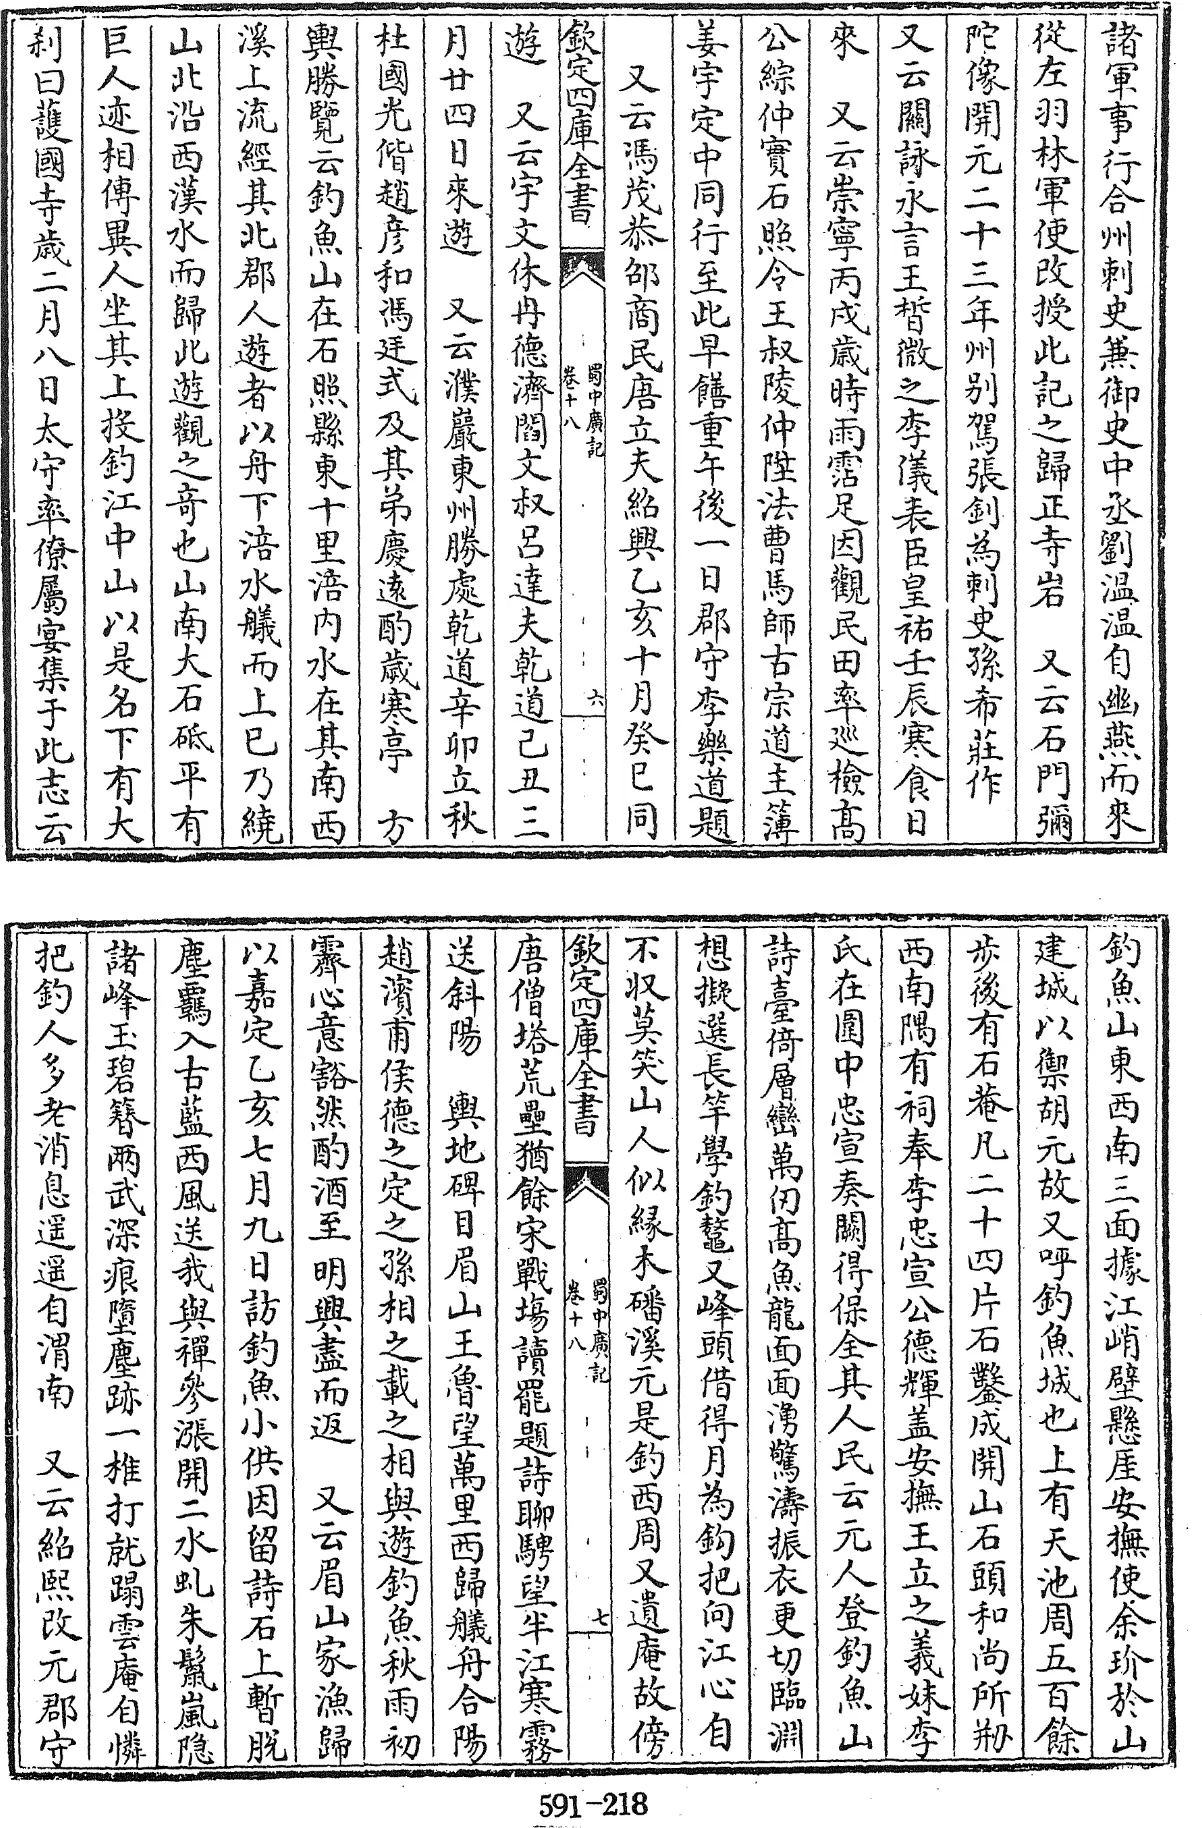 諸軍事行合州刺史兼御史中丞劉温温自幽燕而來
從左羽林軍使改授此記之歸正寺岩　又云石門彌
陀像開元二十三年州别駕張釗為刺史孫希莊作
又云關詠永言王晳微之李儀表臣皇祐壬辰寒食日
來　又云崇寧丙戌歲時雨霑足因觀民田率巡檢髙
公綜仲實石照令王叔陵仲陞法曹馬師古宗道主簿
姜宇定中同行至此早饍重午後一日郡守李樂道題
又云馮茂恭邵商民唐立夫紹興乙亥十月癸巳同
欽定四庫全書
蜀中廣記
卷十八
六
遊　又云宇文休冉德濟閻文叔呂達夫乾道己丑三
月廿四日來遊　又云濮巖東州勝處乾道辛卯立秋
杜國光偕趙彦和馮廷式及其弟慶遠酌歲寒亭　方
輿勝覽云釣魚山在石照縣東十里涪内水在其南西
溪上流經其北郡人遊者以舟下涪水艤而上已乃繞
山北沿西漢水而歸此遊觀之竒也山南大石砥平有
巨人迹相傳異人坐其上投釣江中山以是名下有大
刹曰護國寺歲二月八日太守率僚屬宴集于此志云
釣魚山東西南三面據江峭壁懸厓安撫使余玠於山
建城以禦胡元故又呼釣魚城也上有天池周五百餘
步後有石菴凡二十四片石鑿成開山石頭和尚所刱
西南隅有祠奉李忠宣公德輝盖安撫王立之義妹李
氏在圍中忠宣奏闕得保全其人民云元人登釣魚山
詩臺倚層巒萬仞髙魚龍面面湧驚濤振衣更切臨淵
想擬選長竿學釣鼇又峰頭借得月為鈎把向江心自
不収莫笑山人似緣木磻溪元是釣西周又遺庵故傍
欽定四庫全書
蜀中廣記
卷十八
七
唐僧塔荒壘猶餘宋戰塲讀罷題詩聊騁望半江寒霧
送斜陽　輿地碑目眉山王魯望萬里西歸艤舟合陽
趙濱甫侯德之定之孫相之載之相與遊釣魚秋雨初
霽心意豁然酌酒至明興盡而返　又云眉山家漁歸
以嘉定乙亥七月九日訪釣魚小供因留詩石上暫脱
塵羈入古藍西風送我與禪參漲開二水虬朱鬣嵐隐
諸峰玉碧簮兩武深痕墮塵跡一椎打就蹋雲庵自憐
把釣人多老消息遥遥自渭南　又云紹熙改元郡守
591-218